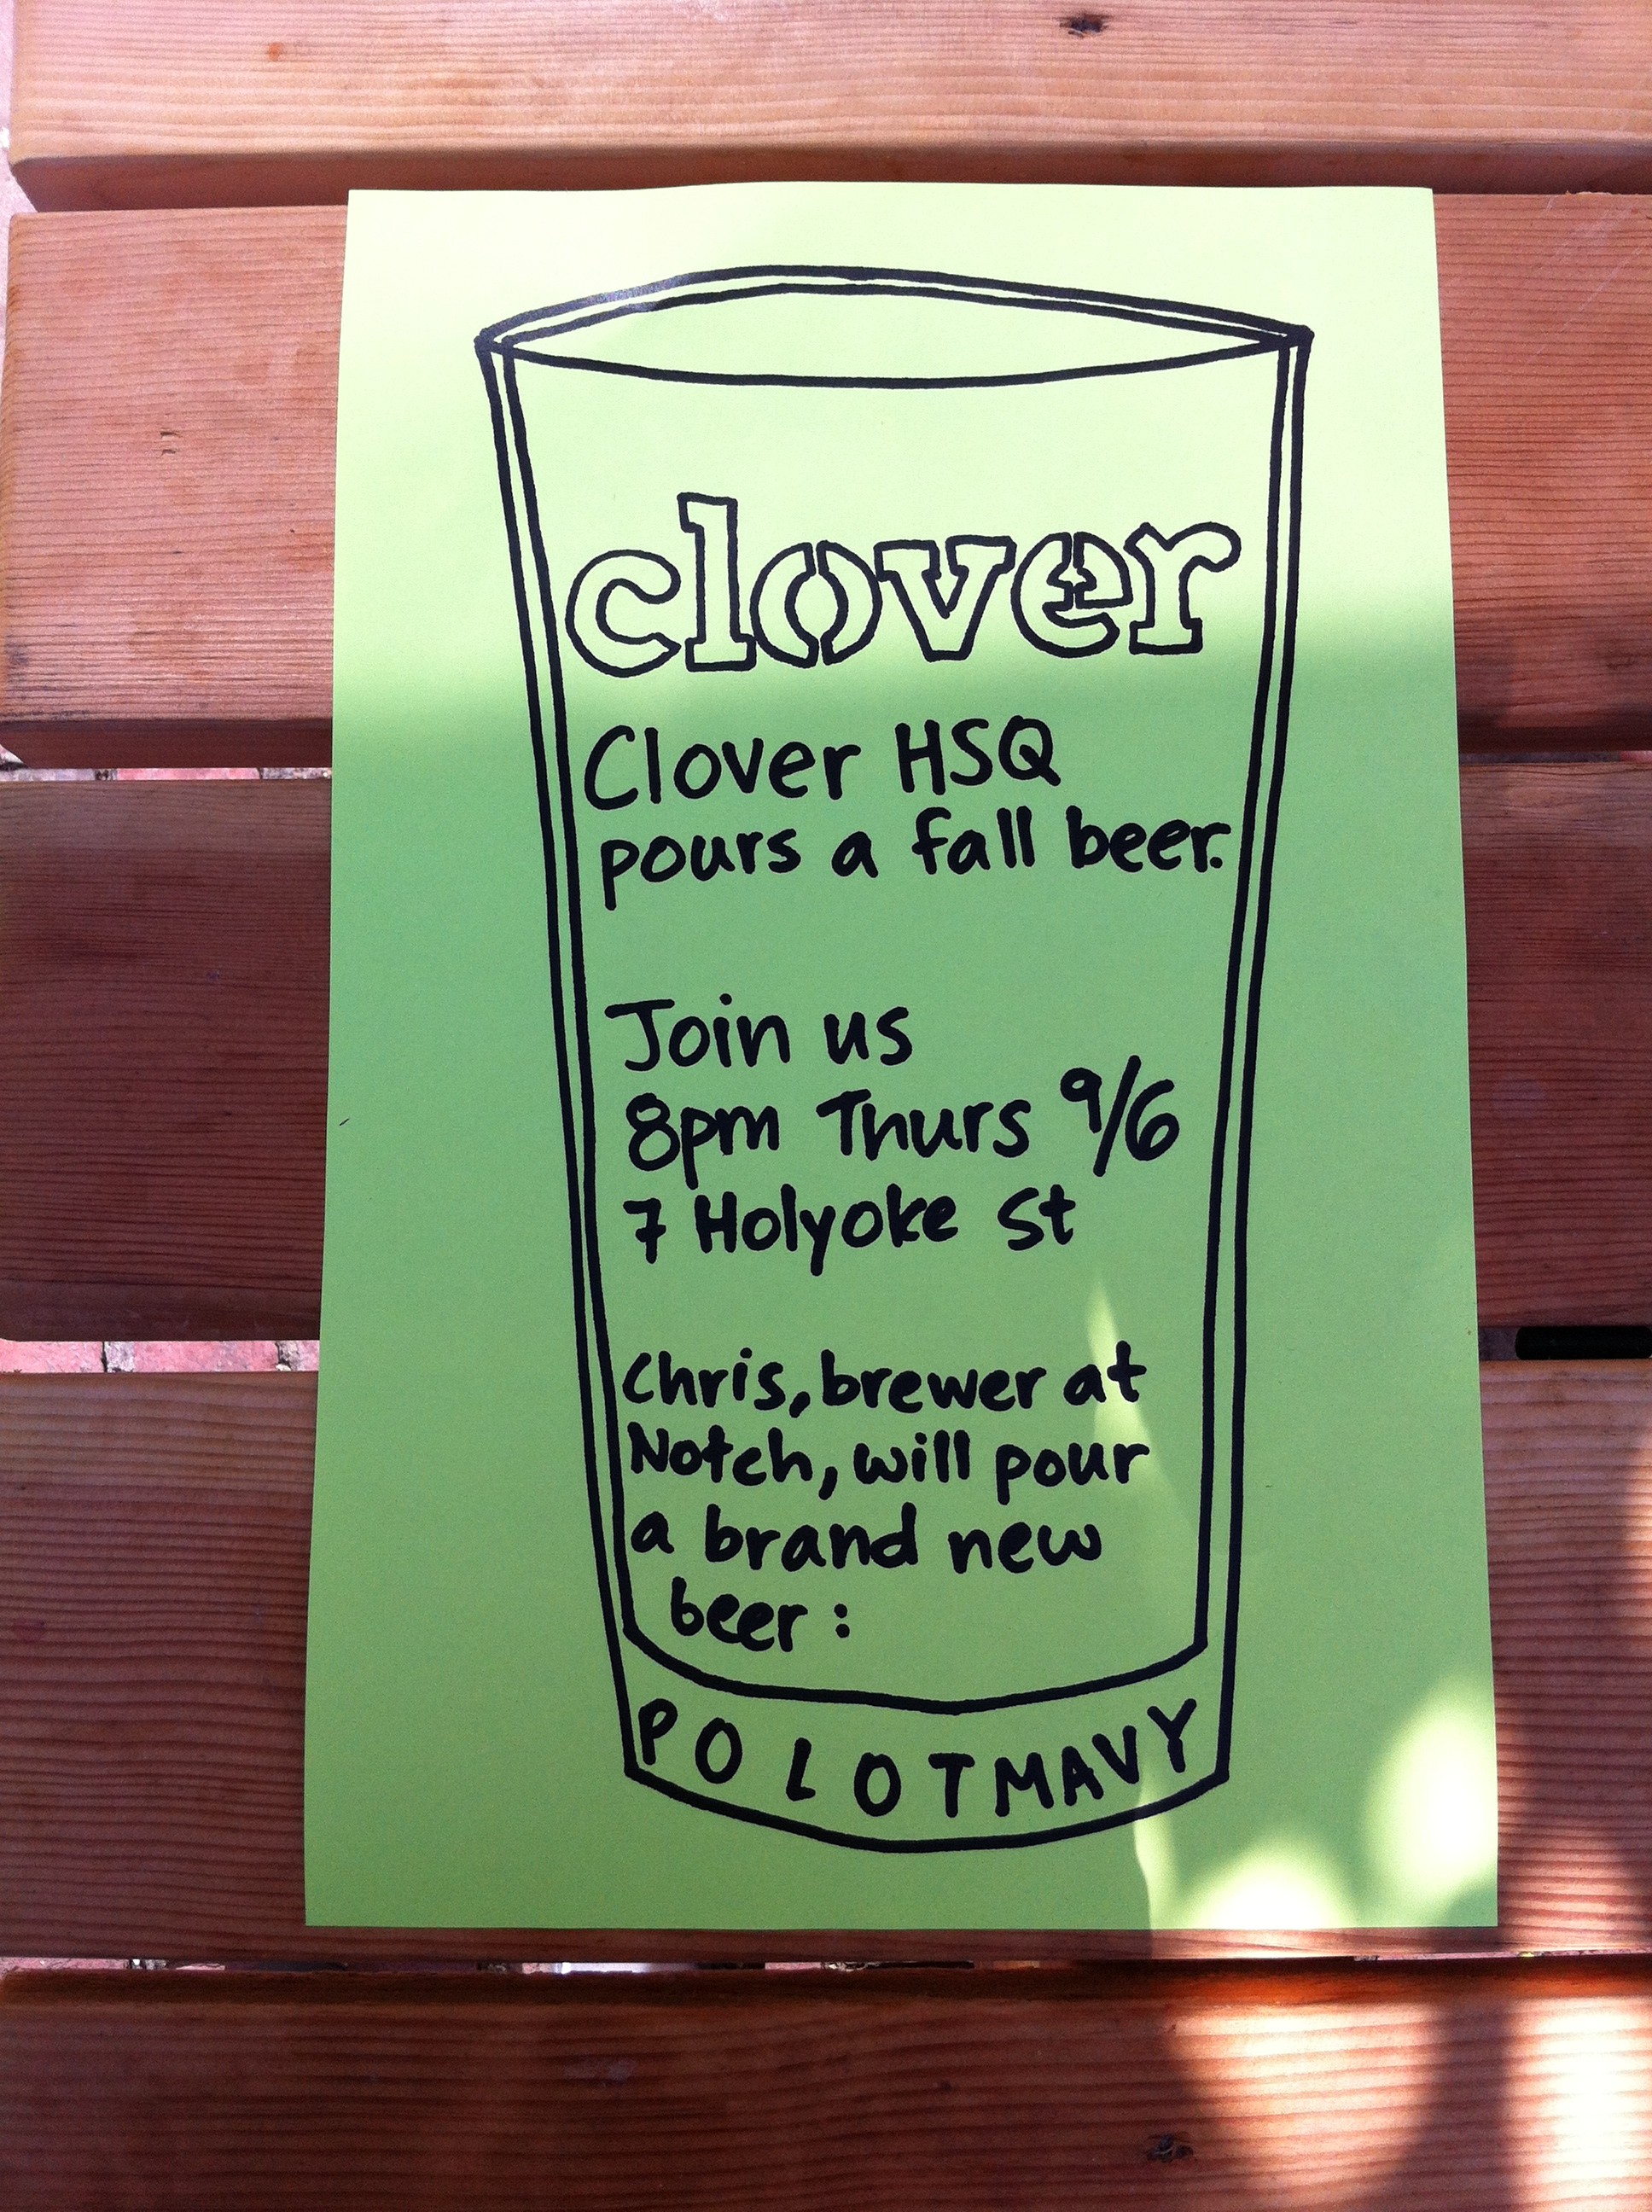 clover
Clover HSQ
pours a fall beer.
Join us
8pm Thurs 9/6
7 Holyoke St
Chris, brewer at
Notch, will pour
a brand new
beer :
POLOTMAVY